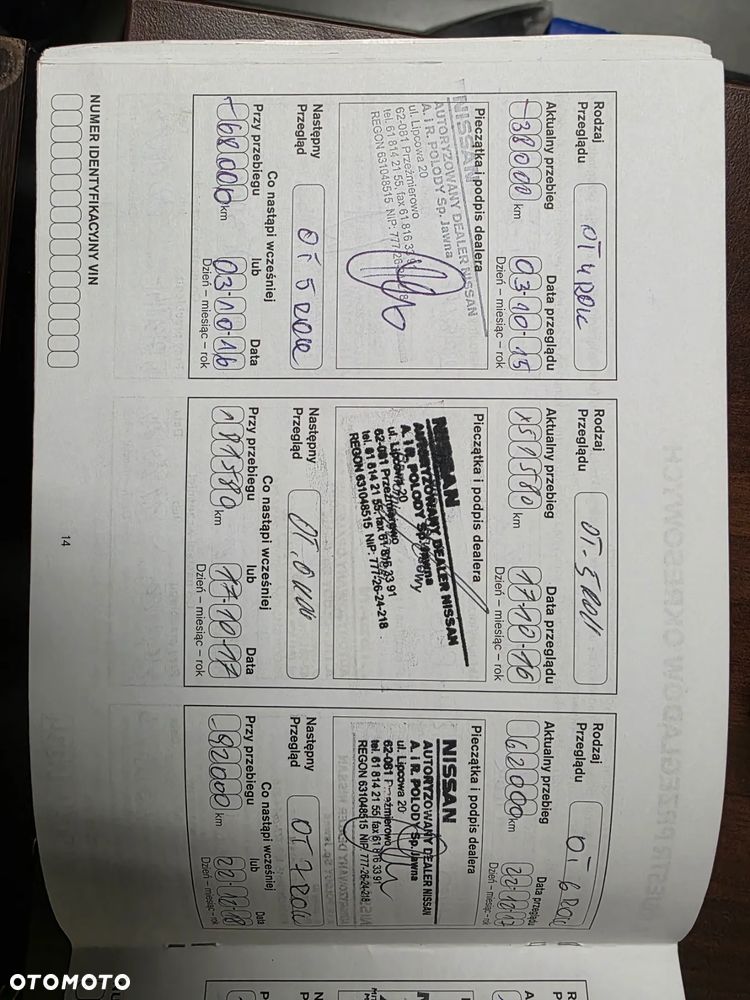 Rodzaj
Przeglądu
OT 4 ROK
Aktualny przebieg
38000 km
Data przeglądu
03-10-15
Dzień – miesiąc – rok
Pieczątka i podpis dealera
NISSAN
AUTORYZOWANY DEALER NISSAN
A. i R. POLODY Sp. Jawna
ul. Lipcowa 20
62-081 Przeźmierowo
tel. 61 814 21 55, fax 61 816 33 91
REGON 631048515 NIP: 777-26
Następny
Przegląd
OT 5 ROK
Co nastąpi wcześniej
Przy przebiegu
68000 km
lub
Data
03-10-16
Dzień – miesiąc – rok
Rodzaj
Przeglądu
OT-5 ROK
Aktualny przebieg
51580 km
Data przeglądu
17-10-16
Dzień – miesiąc – rok
Pieczątka i podpis dealera
NISSAN
AUTORYZOWANY DEALER NISSAN
A. i R. POLODY Sp. Jawna
ul. Lipcowa 20
62-081 Przeźmierowo
tel. 61 814 21 55, fax 61 816 33 91
REGON 631048515 NIP: 777-26-24-218
Następny
Przegląd
Co nastąpi wcześniej
Przy przebiegu
81580 km
lub
Data
17-10-17
Dzień – miesiąc – rok
Rodzaj
Przeglądu
OT 6 ROK
Aktualny przebieg
62000 km
Data przeglądu
22-12-17
Dzień – miesiąc – rok
Pieczątka i podpis dealera
NISSAN
AUTORYZOWANY DEALER NISSAN
A. i R. POLODY Sp. Jawna
ul. Lipcowa 20
62-081 Przeźmierowo
tel. 61 814 21 55 fax 61 816 33 91
REGON 631048515 NIP: 777-26-24-218
Następny
Przegląd
OT 7 ROK
Co nastąpi wcześniej
Przy przebiegu
92000 km
lub
Data
22-12-18
Dzień – miesiąc – rok
NUMER IDENTYFIKACYJNY VIN
14
OTOMOTO